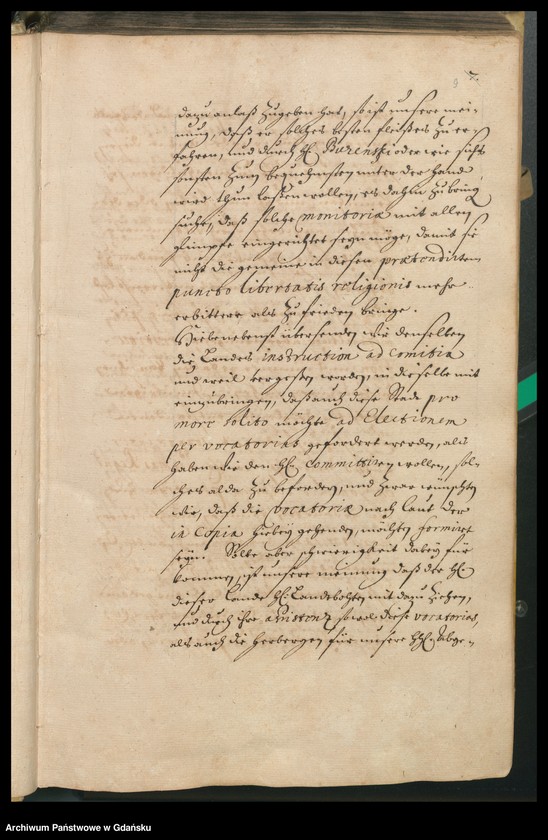 7.
9
dazu anlaß zugeben hat, so ist unsere mei-
nung, daß er solches besten fleißes zu er-
fahren, und durch H. Buzenski oder wie sichs
sonsten zum bequehmsten unter der hand
wird thun laßen wollen, es dahin zu bring
suche, daß solche monitoria mit allem
glimpfe eingerichtet seyn möge, damit sie
nicht die gemeine in diesem prætendirten
puncto libertatis religionis mehr
erbittere als zu frieden bringe.
Hiebenebenst übersenden wir denselben
die Landes instruction ad comitia
und weil vergeßen worden, in dieselbe mit
einzubringen, daß auch diese Stadt pro
more solito möchte ad Electionem
per vocatorias gefordert werden, als
haben wir den HE. committiren wollen, sol-
ches alda zu befordern, und zwar wünschten
wir, daß die vocatoriæ nach laut der
in copia hiebey gehenden, möchten formiret
seyn. Solte aber schwierigkeit dabey für
kommen, ist unsere meinung daß der HE.
dieser Lande HE. Landtbohten mit dazu ziehen,
und durch ihre assistenz sowol diese vocatorias,
als auch die herbergen für unsere HHE. Abge-
Archiwum Państwowe w Gdańsku